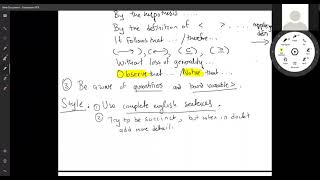 By the hypothesis
By the definition of < >
It follows that ... / therefore...
(⟶), (⟵), (⊆), (⊇)
Without loss of generality...
Observe that ... / Note that ....
③ Be aware of quantifiers and bound variables.
Style. ① Use complete english sentences.
② Try to be succinct, but when in doubt
add more details.